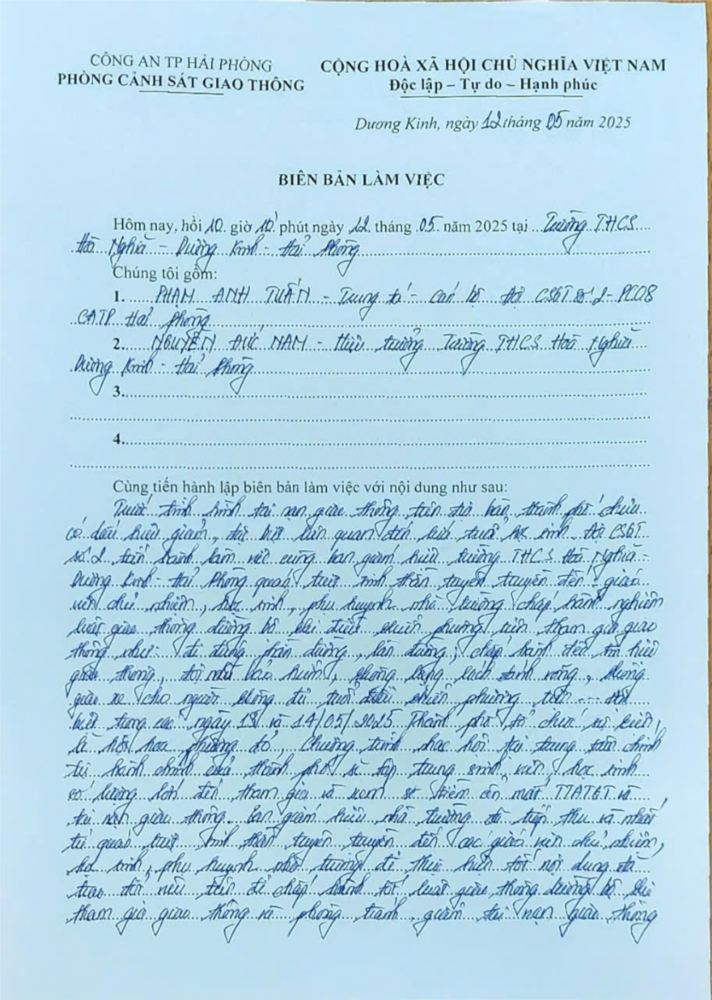 CÔNG AN TP HẢI PHÒNG
PHÒNG CẢNH SÁT GIAO THÔNG
CỘNG HOÀ XÃ HỘI CHỦ NGHĨA VIỆT NAM
Độc lập – Tự do – Hạnh phúc
Dương Kinh, ngày 12 tháng 05 năm 2025
BIÊN BẢN LÀM VIỆC
Hôm nay, hồi 10 giờ 10 phút ngày 12 tháng 05 năm 2025 tại Trường THCS
Hoà Nghĩa - Dương Kinh - Hải Phòng
Chúng tôi gồm:
1. PHẠM ANH TUẤN - Trung tá - Cán bộ Đội CSGT số 2 - PC08
CATP Hải Phòng
2. NGUYỄN ĐỨC NAM - Hiệu trưởng Trường THCS Hoà Nghĩa
Dương Kinh - Hải Phòng
3.
4.
Cùng tiến hành lập biên bản làm việc với nội dung như sau:
Trước tình hình tai nạn giao thông trên địa bàn thành phố chưa
có dấu hiệu giảm, đặc biệt liên quan đến lứa tuổi học sinh. Đội CSGT
số 2 tiến hành làm việc cùng ban giám hiệu trường THCS Hoà Nghĩa -
Dương Kinh - Hải Phòng quán triệt tinh thần tuyên truyền đến giáo
viên chủ nhiệm, học sinh, phụ huynh nhà trường chấp hành nghiêm
luật giao thông đường bộ khi điều khiển phương tiện tham gia giao
thông như: đi đúng phần đường, làn đường, chấp hành đèn tín hiệu
giao thông, đội mũ bảo hiểm, không lạng lách đánh võng, không
giao xe cho người không đủ tuổi điều khiển phương tiện --- đặc
biệt trong các ngày 13 và 14/05/2025 Thành phố tổ chức sự kiện
lễ hội hoa phượng đỏ, Chương trình nhạc hội tại trung tâm chính
trị hành chính của thành phố sẽ tập trung sinh viên, học sinh
số lượng lớn đến tham gia và xem sự kiện gây mất TTATGT và
tai nạn giao thông. Ban giám hiệu nhà trường đã tiếp thu và nhất
trí quán triệt tinh thần tuyên truyền đến các giáo viên chủ nhiệm,
học sinh, phụ huynh nhà trường để thực hiện tốt nội dung đã
trao đổi nêu trên để chấp hành tốt luật giao thông đường bộ khi
tham gia giao thông và phòng tránh, giảm tai nạn giao thông